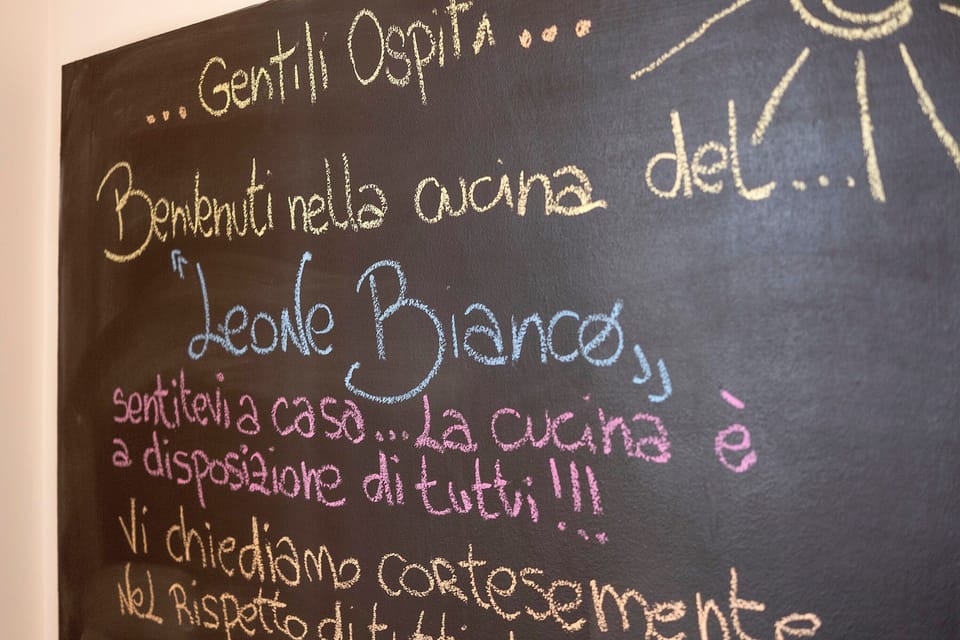 ... Gentili Ospiti ...
Benvenuti nella cucina del...
"Leone Bianco"
sentitevi a casa... La cucina è
a disposizione di tutti!!!
Vi chiediamo cortesemente
Nel Rispetto di tutti